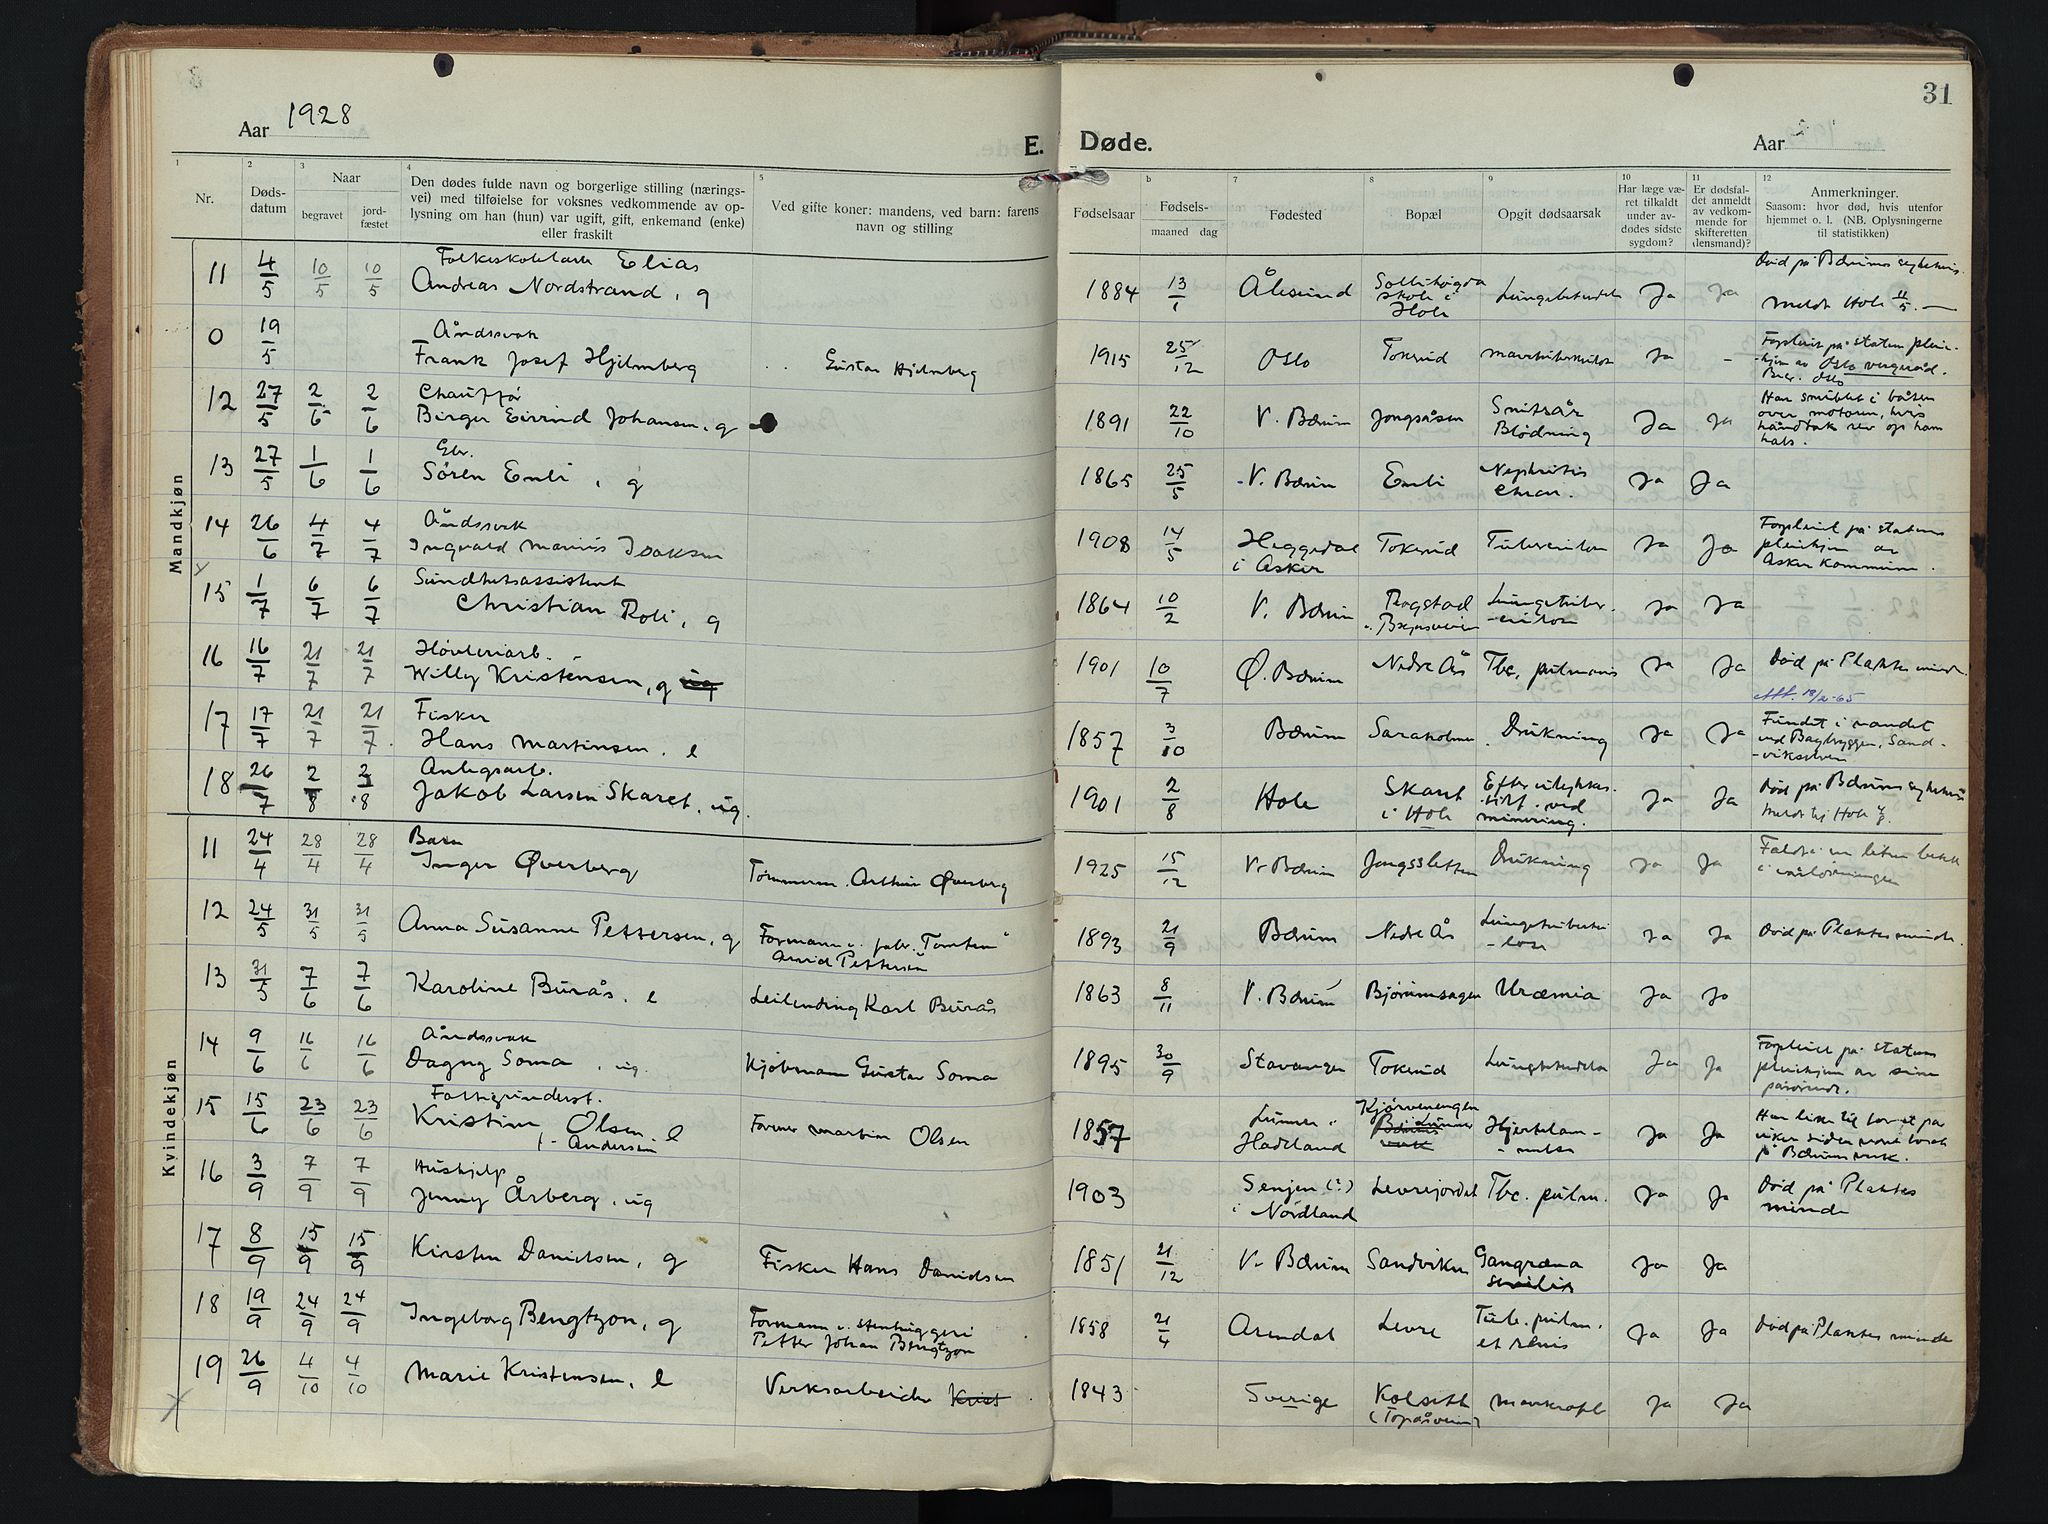 31
Aar 1928
E. Døde.
Aar
1 2 3 4 5 6 7 8 9 10 11 12
Nr.
Døds-
datum
Naar
begravet
jord-
fæstet
Den dødes fulde navn og borgerlige stilling (nærings-
vei) med tilføielse for voksnes vedkommende av op-
lysning om han (hun) var ugift, gift, enkemand (enke)
eller fraskilt
Ved gifte koner: mandens, ved barn: farens
navn og stilling
Fødselsaar
Fødsels-
maaned dag
Fødested
Bopæl
Opgit dødsaarsak
Har læge væ-
ret tilkaldt
under av-
dødes sidste
sygdom?
Er dødsfal-
det anmeldt
av vedkom-
mende for
skifteretten
(lensmand)?
Anmerkninger.
Saasom: hvor død, hvis utenfor
hjemmet o. l. (NB. Oplysningerne
til statistikken)
Mandkjøn
11 4/5 10/5 10/5 Elias
Andreas Nordstrand, g 1884 13/1 Ålesund Sollihøgda skole i Hole Ja Ja Død på Bærums
meldt Hole 11/5. —
0 19/5 Åndssvak
Frank Josef Hjelmberg Gustav Hjelmberg 1915 25/12 Oslo Tokerud Ja - Forpleiet på statens pleie-
hjem av Oslo vergeråd.
12 27/5 2/6 2/6 Chauffør
Birger Eivind Johansen, g 1891 22/10 V. Bærum Jongsåsen Snitsår Blødning Ja Ja Har snublet i båten
over motoren, hvis
håndtak rev op ham
hals.
13 27/5 1/6 1/6 Gbr.
Søren Enli, g 1865 25/5 V. Bærum Enli Nephritis chron. Ja Ja
14 26/6 4/7 4/7 Åndssvak
Ingvald Marius Isaksen 1908 14/5 Heggedal i Asker Tokerud Tuberculose Ja Ja Forpleiet på statens
pleiehjem av
Asker Kommune.
15 1/7 6/7 6/7 Sundhetsassistent
Christian Roli, g 1864 10/2 V. Bærum Rogstad Lungetuber-
culose Ja Ja
16 16/7 21/7 21/7 Høvleriarb.
Willy Kristensen, g ug 1901 10/7 Ø. Bærum Nedre Ås Tbc. pulmonis Ja Ja Død på Plahtes minde.
Att. 18/2-65
17 17/7 21/7 21/7 Fisker
Hans Martinsen, e 1857 3/10 Bærum Saraholmen Drukning Ja Ja Fundet i vandet
ved Bagbryggen, Sand-
vikselven
18 26/7 2/8 2/8 Anlegsarb.
Jakob Larsen Skaret, ug. 1901 2/8 Hole Skaret i Hole Efter ulykkes-
tilf. ved
minering. Ja Ja Død på Bærums sykehus
Meldt til Hole
Kvindekjøn
11 24/4 28/4 28/4 Barn
Inger Øverberg Tømmerm. Arthur Øverberg 1925 15/12 V. Bærum Jongssletten Drukning Ja Ja Faldt i en liten bekk
i vårløsningen
12 24/5 31/5 31/5 Anna Susanne Pettersen, g Formann v. fabr. "Tomten"
Arvid Pettersen 1893 21/9 Bærum Nedre Ås Lungetuberku-
lose Ja Ja Død på Plahtes minde.
13 31/5 7/6 7/6 Karoline Burås, e Leilending Karl Burås 1863 8/11 V. Bærum Bjørumsagen Uræmia Ja Ja
14 9/6 16/6 16/6 Åndssvak
Dagny Soma, ug. Kjøbmann Gustav Soma 1895 30/9 Stavanger Tokerud Lungebetendelse Ja Ja Forpleiet på statens
pleiehjem av sine
pårørende.
15 15/6 23/6 23/6 Fattigunderst.
Kristine Olsen, e
f. Andersen Former Martin Olsen 1857 Lunner i Hadeland Kjørvenengen i Lunner Hjertelam-
melse Ja Ja
på Bærums verk.
16 3/9 7/9 7/9 Hushjelp
Jenny Årberg, ug 1903 Senjen (?)
i Nordland Levrejordet Tbc. pulm. Ja Ja Død på Plahtes
minde
17 8/9 15/9 15/9 Kirsten Danielsen, g Fisker Hans Danielsen 1851 21/12 V. Bærum Sandviken Gangræna
senilis Ja Ja
18 19/9 24/9 24/9 Ingeborg Bengtzon, g Formann v. stenhuggeri
Petter Johan Bengtzon 1858 21/4 Arendal Levre Tub. pulm.
et renis Ja Ja Død på Plahtes minde
19 26/9 4/10 4/10 Marie Kristensen, e Verksarbeider Krist 1843 Sverige Kolsett
(Topåsveien) Mavekræft Ja Ja